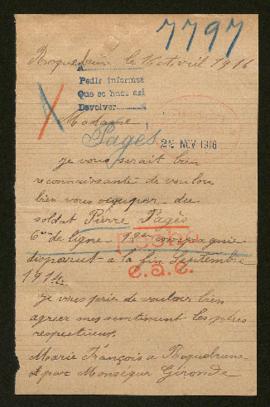 7797
Roquebrune le 15 Avril 1916
A
Pedir informes
Que se hace así
Devolver
Madame
Pagès
je vous serait bien
reconnaissante de vouloir
bien vous occuper du
soldat Pierre Pagès
6me de ligne 19em compagnie
disparut à la fin Septembre
1914
C.S.C.
je vous prie de vouloir bien
agréer mes sentiment les plus
respectueux
Marie François a Roquebrune
par Monségur Gironde